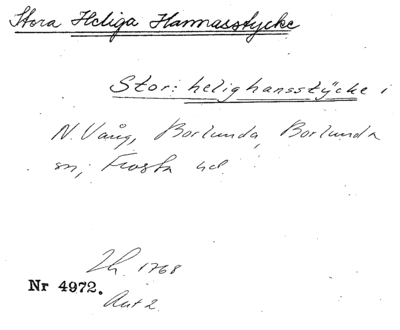 Stora Heliga Hannasstycke
Stor: helighansstÿcke i
N. Vång, Borlunda, Borlunda
sn; Frosta hd.
Lh. 1768
Nr 4972.
Akt 2.